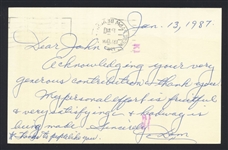 Jan. 13, 1987
Dear John
Acknowledging your very
generous contribution & thank you.
My personal effort is fruitful
& very satisfying & 
being made
& thanks to people like you.